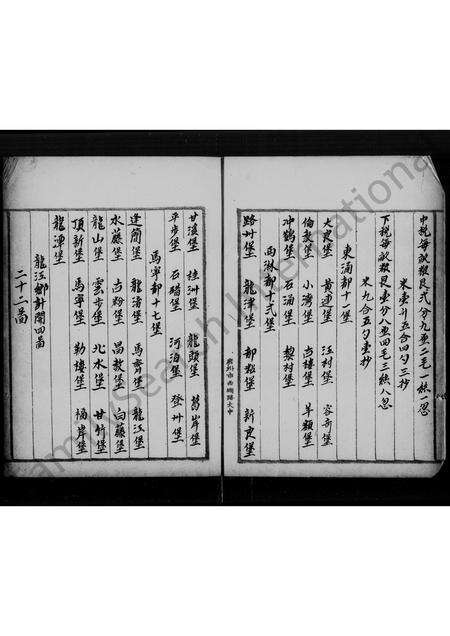 中税每畝殺艮弍分九厘二毛一絲一忽
米壹升五合四勺三抄
下税每畝殺艮壹分八厘四毛三絲八忽
米九合五勺壹抄
東涌都十一堡
大良堡 黄連堡 江村堡 容奇堡
倫教堡 小湾堡 古樓堡 羊額堡
冲鶴堡 石涌堡 黎村堡
西淋都十弍堡
龍津堡 都粘堡 新良堡
甘溪堡 桂洲堡 龍頭堡 葛岸堡
平步堡 石硝堡 河泊堡 登州堡
馬寧都十七堡
逢簡堡 龍渚堡 馬齊堡 龍江堡
水藤堡 古粉堡 昌教堡 白藤堡
龍山堡 雲步堡 北水堡 甘竹堡
頂新堡 馬寧堡 勒樓堡 桶岸堡
龍潭堡
龍江鄉計開四啚
二十二啚
FamilySearch International